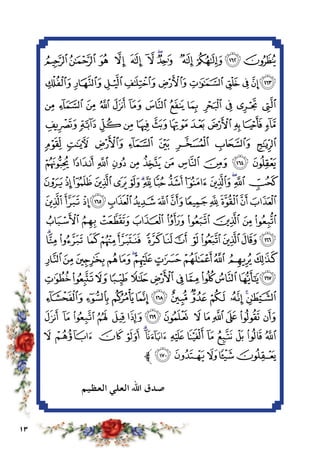 يُنظَرُونَ ١٦٢ وَإِلَٰهُكُمْ إِلَٰهٌ وَٰحِدٌۖ لَّآ إِلَٰهَ إِلَّا هُوَ ٱلرَّحْمَٰنُ ٱلرَّحِيمُ
١٦٣ إِنَّ فِي خَلْقِ ٱلسَّمَٰوَٰتِ وَٱلْأَرْضِ وَٱخْتِلَٰفِ ٱلَّيْلِ وَٱلنَّهَارِ وَٱلْفُلْكِ
ٱلَّتِي تَجْرِي فِي ٱلْبَحْرِ بِمَا يَنفَعُ ٱلنَّاسَ وَمَآ أَنزَلَ ٱللَّهُ مِنَ ٱلسَّمَآءِ مِن
مَّآءٍ فَأَحْيَا بِهِ ٱلْأَرْضَ بَعْدَ مَوْتِهَا وَبَثَّ فِيهَا مِن كُلِّ دَآبَّةٍ وَتَصْرِيفِ
ٱلرِّيَٰحِ وَٱلسَّحَابِ ٱلْمُسَخَّرِ بَيْنَ ٱلسَّمَآءِ وَٱلْأَرْضِ لَءَايَٰتٍ لِّقَوْمٍ
يَعْقِلُونَ ١٦٤ وَمِنَ ٱلنَّاسِ مَن يَتَّخِذُ مِن دُونِ ٱللَّهِ أَندَادًا يُحِبُّونَهُمْ
كَحُبِّ ٱللَّهِۖ وَٱلَّذِينَ ءَامَنُوٓا۟ أَشَدُّ حُبًّا لِّلَّهِۗ وَلَوْ يَرَى ٱلَّذِينَ ظَلَمُوٓا۟ إِذْ يَرَوْنَ
ٱلْعَذَابَ أَنَّ ٱلْقُوَّةَ لِلَّهِ جَمِيعًا وَأَنَّ ٱللَّهَ شَدِيدُ ٱلْعَذَابِ ١٦٥ إِذْ تَبَرَّأَ ٱلَّذِينَ
ٱتُّبِعُوا۟ مِنَ ٱلَّذِينَ ٱتَّبَعُوا۟ وَرَأَوُا۟ ٱلْعَذَابَ وَتَقَطَّعَتْ بِهِمُ ٱلْأَسْبَابُ
١٦٦ وَقَالَ ٱلَّذِينَ ٱتَّبَعُوا۟ لَوْ أَنَّ لَنَا كَرَّةً فَنَتَبَرَّأَ مِنْهُمْ كَمَا تَبَرَّءُوا۟ مِنَّاۗ
كَذَٰلِكَ يُرِيهِمُ ٱللَّهُ أَعْمَٰلَهُمْ حَسَرَٰتٍ عَلَيْهِمْۖ وَمَا هُم بِخَٰرِجِينَ مِنَ ٱلنَّارِ
١٦٧ يَٰٓأَيُّهَا ٱلنَّاسُ كُلُوا۟ مِمَّا فِي ٱلْأَرْضِ حَلَٰلًا طَيِّبًا وَلَا تَتَّبِعُوا۟ خُطُوَٰتِ
ٱلشَّيْطَٰنِۚ إِنَّهُ لَكُمْ عَدُوٌّ مُّبِينٌ ١٦٨ إِنَّمَا يَأْمُرُكُم بِٱلسُّوٓءِ وَٱلْفَحْشَآءِ
وَأَن تَقُولُوا۟ عَلَى ٱللَّهِ مَا لَا تَعْلَمُونَ ١٦٩ وَإِذَا قِيلَ لَهُمُ ٱتَّبِعُوا۟ مَآ أَنزَلَ
ٱللَّهُ قَالُوا۟ بَلْ نَتَّبِعُ مَآ أَلْفَيْنَا عَلَيْهِ ءَابَآءَنَآۗ أَوَلَوْ كَانَ ءَابَآؤُهُمْ لَا
يَعْقِلُونَ شَيْـًٔا وَلَا يَهْتَدُونَ ١٧٠﴾
صدق الله العلي العظيم
١٣